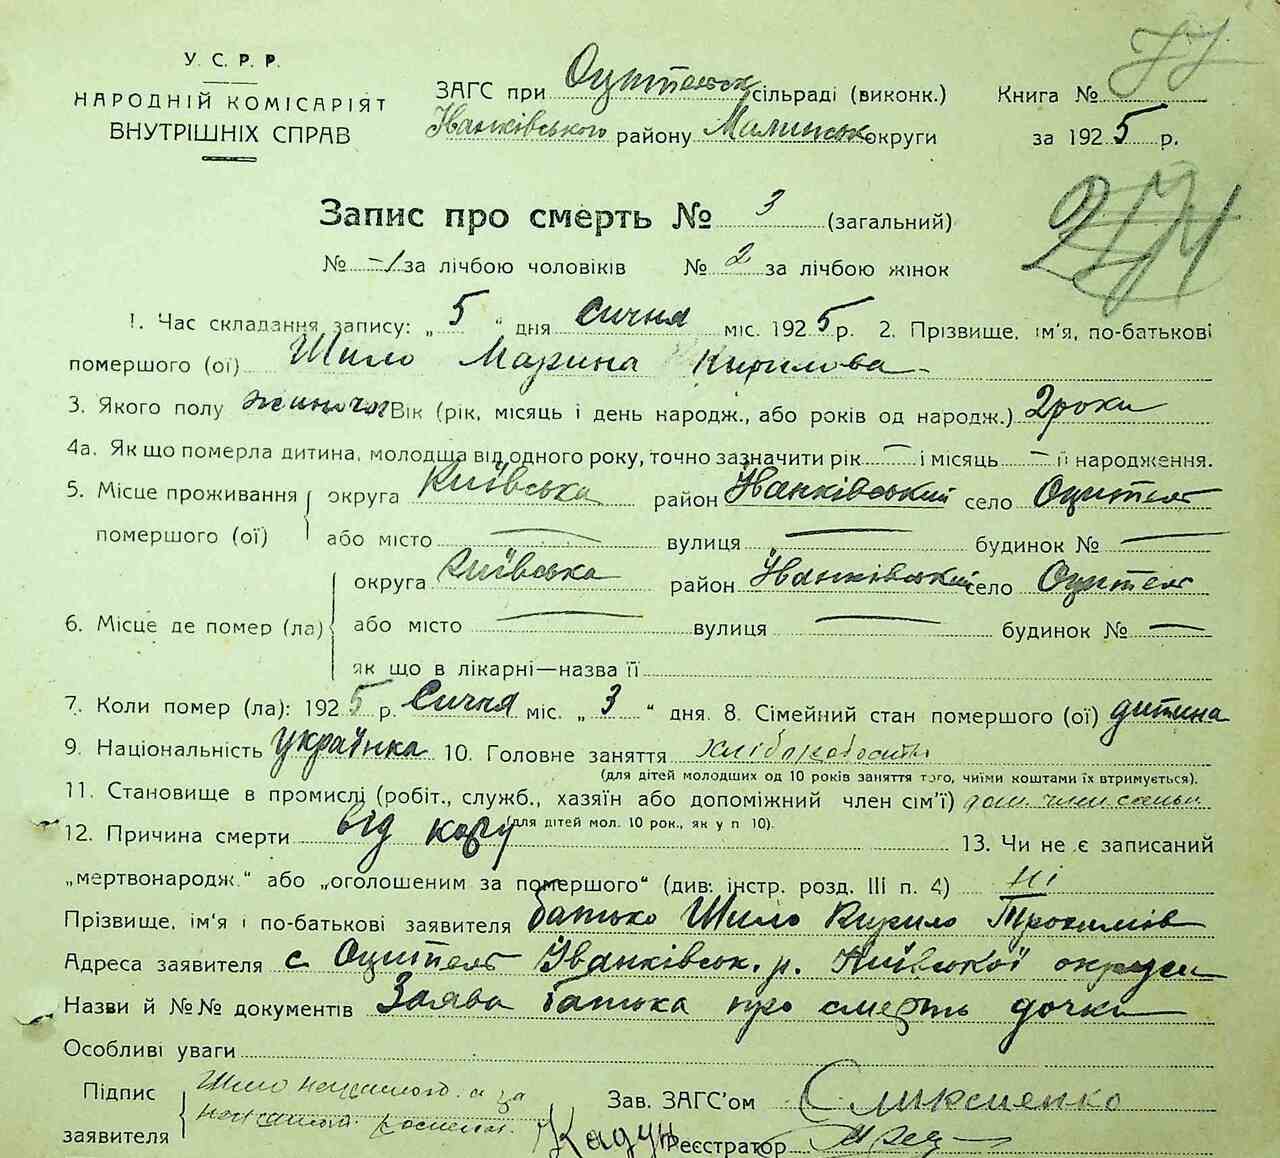 У. С. Р. Р.
НАРОДНІЙ КОМІСАРІЯТ
ВНУТРІШНІХ СПРАВ
ЗАГС при Оцительск сільраді (виконк.)
Іванківського району Малинськ округи
Книга №
за 1925 р.
Запис про смерть № 3 (загальний)
№ -1 за лічбою чоловіків № 2 за лічбою жінок
1. Час складання запису: „ 5 “ дня Січня міс. 1925 р. 2. Прізвище, ім'я, по-батькові
помершого (ої) Шило Марина Кирилова
3. Якого полу жиночог Вік (рік, місяць і день народж., або років од народж.) 2 роки
4а. Як що померла дитина, молодша від одного року, точно зазначити рік — і місяць — її народження.
5. Місце проживання помершого (ої) округа Київська район Іванківський село Оцитель
або місто — вулиця — будинок № —
6. Місце де помер (ла) округа Київська район Іванківський село Оцитель
або місто — вулиця — будинок № —
як що в лікарні—назва її
7. Коли помер (ла): 1925 р. Січня міс. „ 3 “ дня. 8. Сімейний стан помершого (ої) дитина
9. Національність українка 10. Головне заняття хліборобость
(для дітей молодших од 10 років заняття того, чиїми коштами їх втримується).
11. Становище в промислі (робіт., служб., хазяїн або допоміжний член сім'ї) доп. член семьи
(для дітей мол. 10 рок., як у п 10).
12. Причина смерти від кору 13. Чи не є записаний
„мертвонародж.“ або „оголошеним за помершого“ (див. інстр. розд. III п. 4) ні
Прізвище, ім'я і по-батькові заявителя батько Шило Кирило Трохимів
Адреса заявителя с Оцитель Іванківськ. р. Київської округи
Назви й №№ документів Заява батька про смерть дочки
Особливі уваги
Підпис заявителя Шило
Зав. ЗАГС'ом
Реєстратор